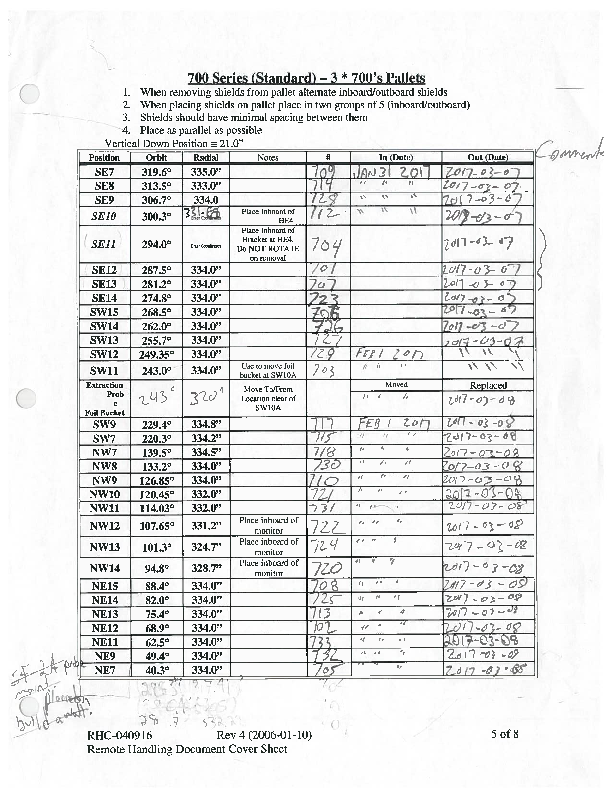 700 Series (Standard) – 3 * 700's Pallets
1. When removing shields from pallet alternate inboard/outboard shields
2. When placing shields on pallet place in two groups of 5 (inboard/outboard)
3. Shields should have minimal spacing between them
4. Place as parallel as possible
Vertical Down Position = 21.0"
Comments
Position Orbit Radial Notes # In (Date) Out (Date)
SE7 319.6° 335.0" 709 JAN 31 2017 2017-03-07
SE8 313.5° 333.0" 714 " " " 2017-03-07
SE9 306.7° 334.0 728 " " " 2017-03-07
SE10 300.3° Place inboard of HE4 712 " " " 2017-03-07
SE11 294.0° Place inboard of Bracket at HE4. Do NOT ROTATE on removal 704 2017-03-07
SE12 287.5° 334.0" 701 2017-03-07
SE13 281.2° 334.0" 707 2017-03-07
SE14 274.8° 334.0" 723 2017-03-07
SW15 268.5° 334.0" 706 2017-03-07
SW14 262.0° 334.0" 726 2017-03-07
SW13 255.7° 334.0" 727 2017-03-07
SW12 249.35° 334.0" 729 FEB 1 2017 " " "
SW11 243.0° 334.0" Use to move foil bucket at SW10A 703 " " " " " "
Extraction Prob e Foil Bucket 243° 320" Move To/From Location clear of SW10A Moved " " " Replaced 2017-03-08
SW9 229.4° 334.8" 717 FEB 1 2017 2017-03-08
SW7 220.3° 334.2" 715 " " " 2017-03-08
NW7 139.5° 334.5" 718 " " " 2017-03-08
NW8 133.2° 334.0" 730 " " " 2017-03-08
NW9 126.85° 334.0" 710 " " " 2017-03-08
NW10 120.45° 332.0" 721 " " " 2017-03-08
NW11 114.03° 332.0" 731 " " 2017-03-08
NW12 107.65° 331.2" Place inboard of monitor 722 " " " 2017-03-08
NW13 101.3° 324.7" Place inboard of monitor 724 " " " 2017-03-08
NW14 94.8° 328.7" Place inboard of monitor 720 " " " 2017-03-08
NE15 88.4° 334.0" 708 " " " 2017-03-08
NE14 82.0° 334.0" 725 " " " 2017-03-08
NE13 75.4° 334.0" 713 " " " 2017-03-08
NE12 68.9° 334.0" 702 " " " 2017-03-08
NE11 62.5° 334.0" 733 " " " 2017-03-08
NE9 49.4° 334.0" 732 " " " 2017-03-08
NE7 40.3° 334.0" 705 " " " 2017-03-08
RHC-040916 Rev 4 (2006-01-10) 5 of 8
Remote Handling Document Cover Sheet